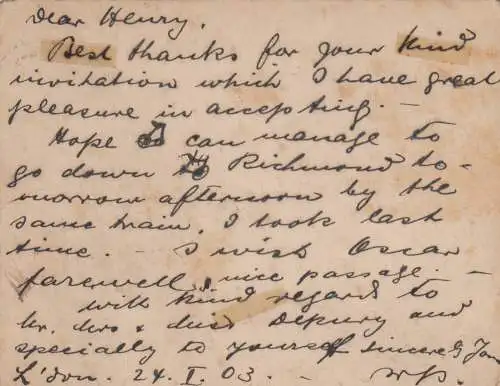 Dear Henry.
Best thanks for your kind
invitation which I have great
pleasure in accepting. —
Hope I can manage to
go down to Richmond to-
morrow afternoon by the
same train, I took last
time. — I wish Oscar
farewell & nice passage. —
with kind regards to
Mr. Mrs & Miss Depury and
specially to yourself sincerely
L'don. 24. I. 03. —